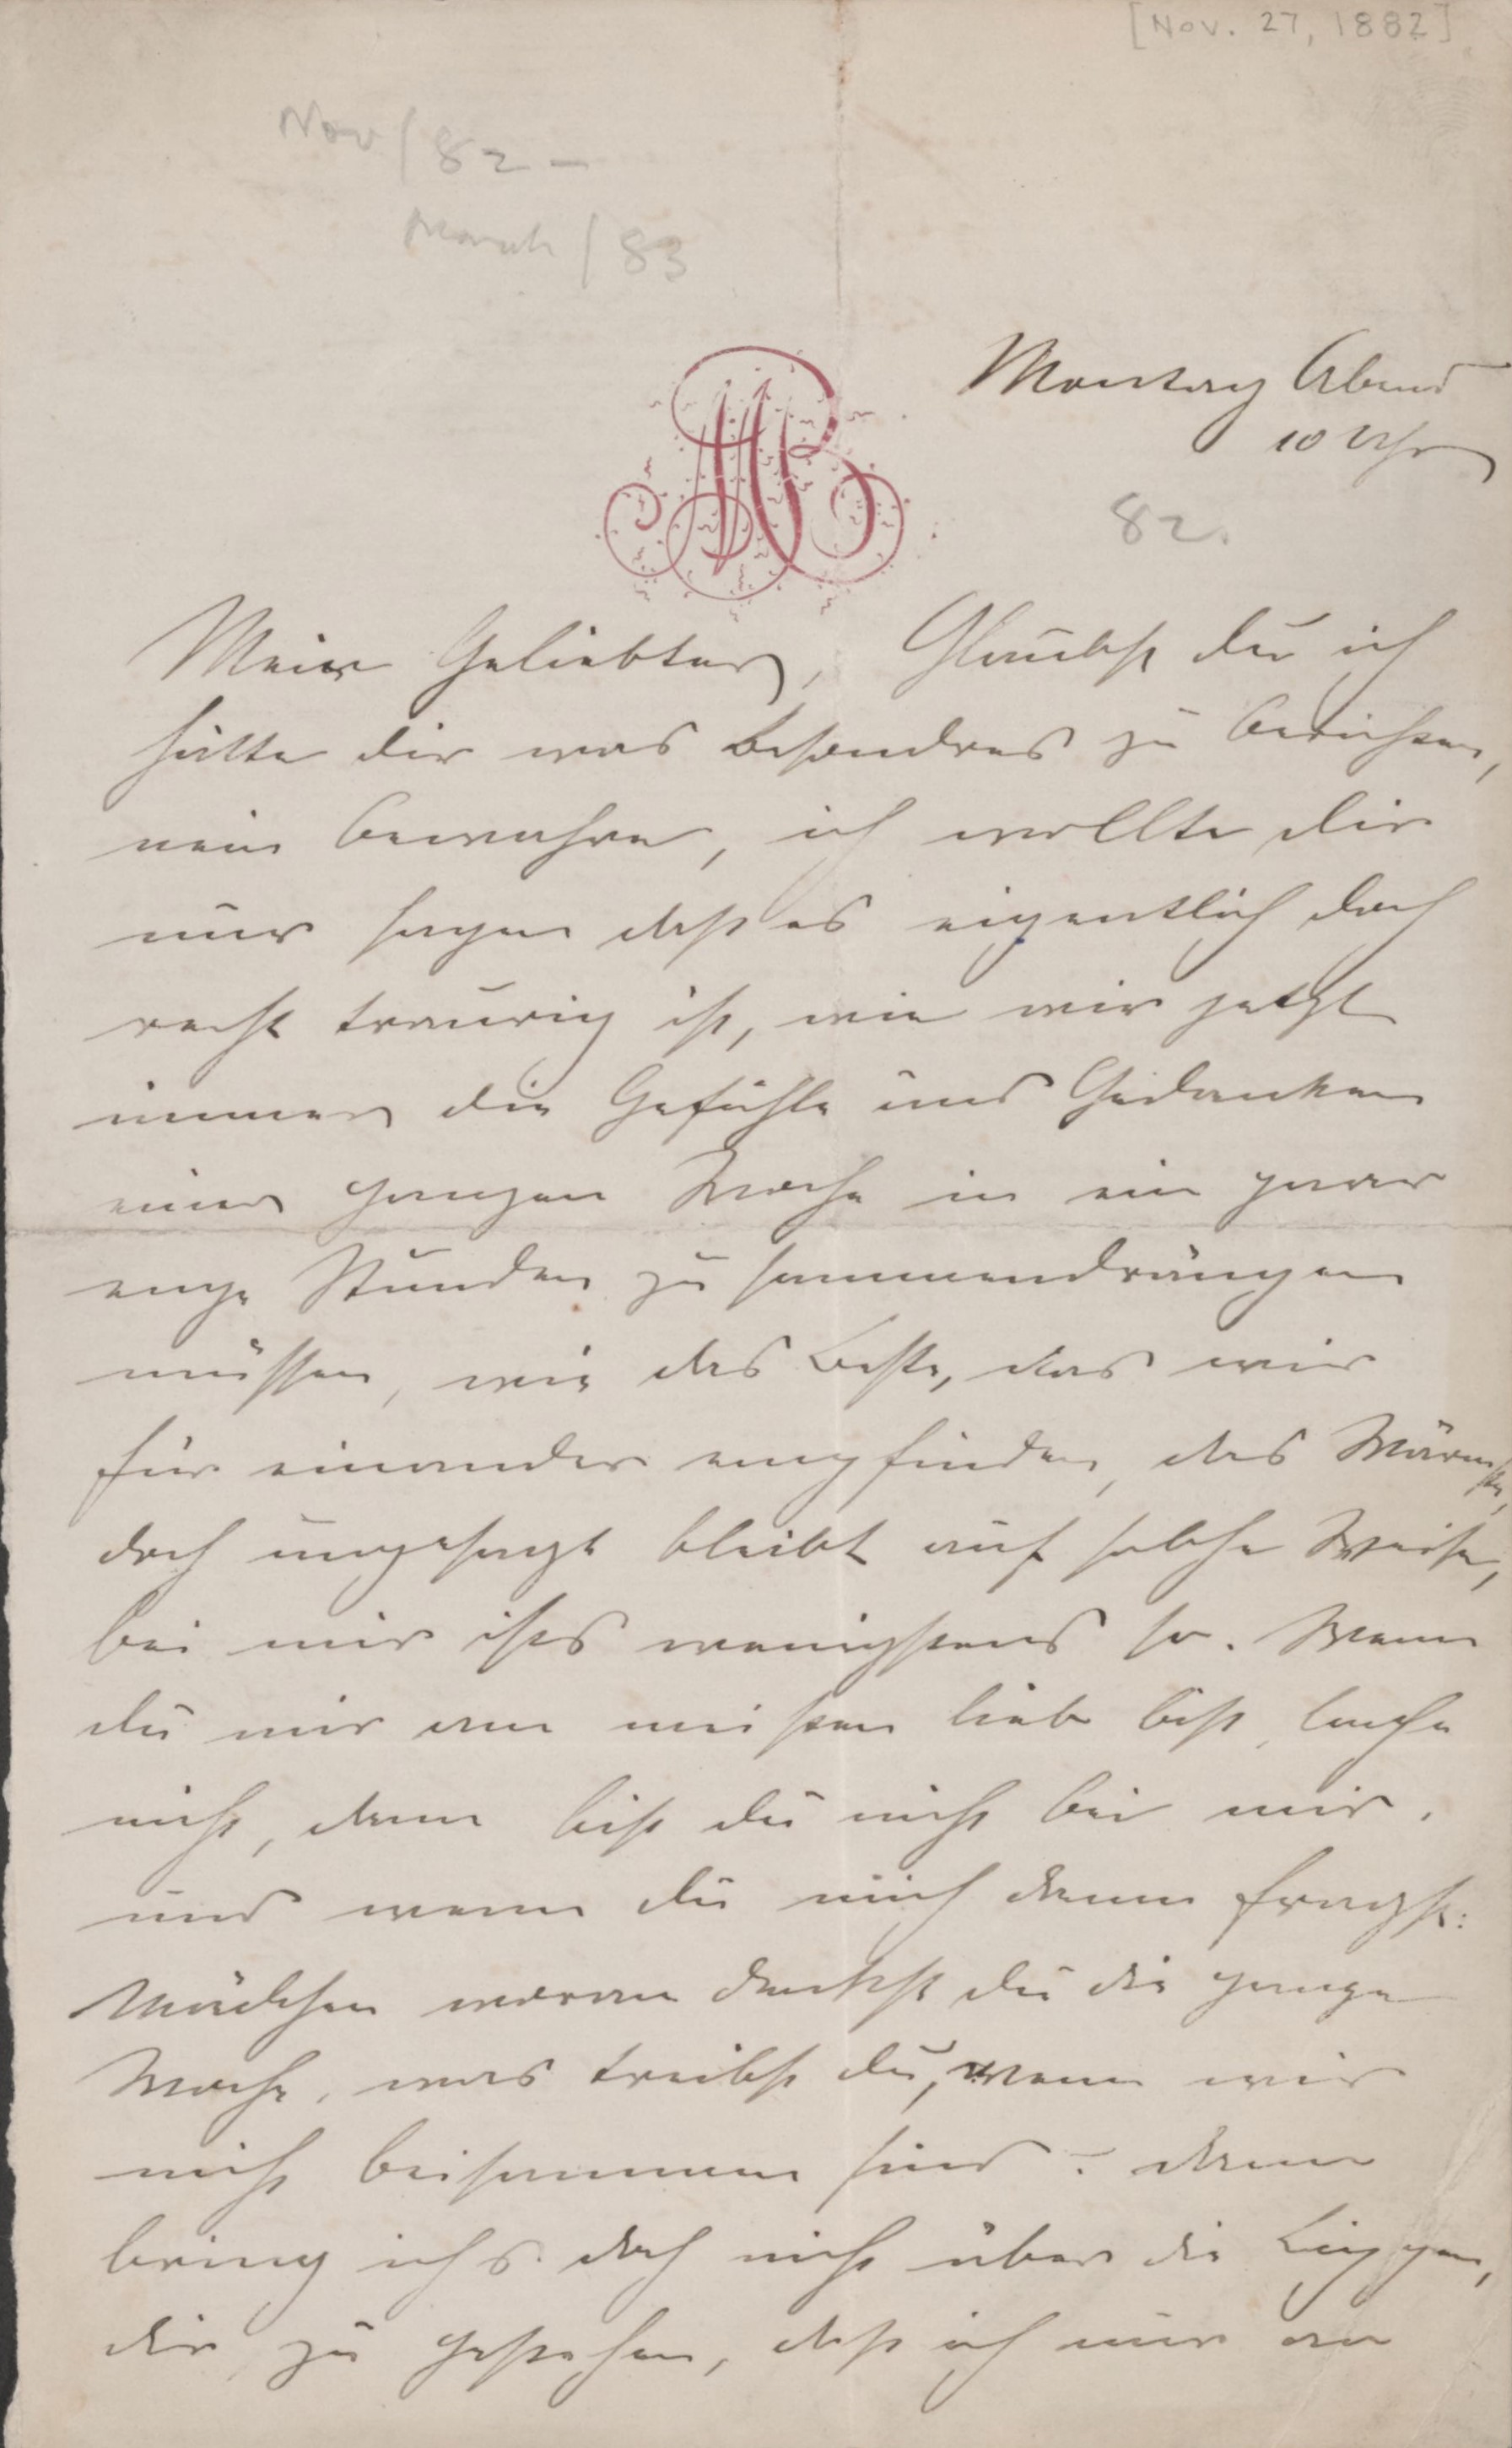 [Nov. 27, 1882]
Nov / 82 –
March / 83
Montag Abend
10 Uhr
82.
Mein Geliebter, Glaubst du ich
hätte dir was Besondres zu berichten,
nein bewahre, ich wollte dir
nur sagen daß es eigentlich doch
recht traurig ist, wie wir jetzt
immer die Gefühle und Gedanken
einer ganzen Woche in ein paar
enge Stunden zu sammendrängen
müssen, wie das Beste, das wir
für einander empfinden, das Wärmste,
doch ungesagt bleibt auf solche Weise,
bei mir ists wenigstens so. Wenn
du mir am meisten lieb bist, lache
nicht, dann bist du nicht bei mir.
und wenn du mich dann fragst:
Mädchen woran denkst du die ganze
Woche, was treibst du, wenn wir
nicht beisammen sind? dann
bring ichs doch nicht über die Lippen,
dir zu gestehen, daß ich nur an